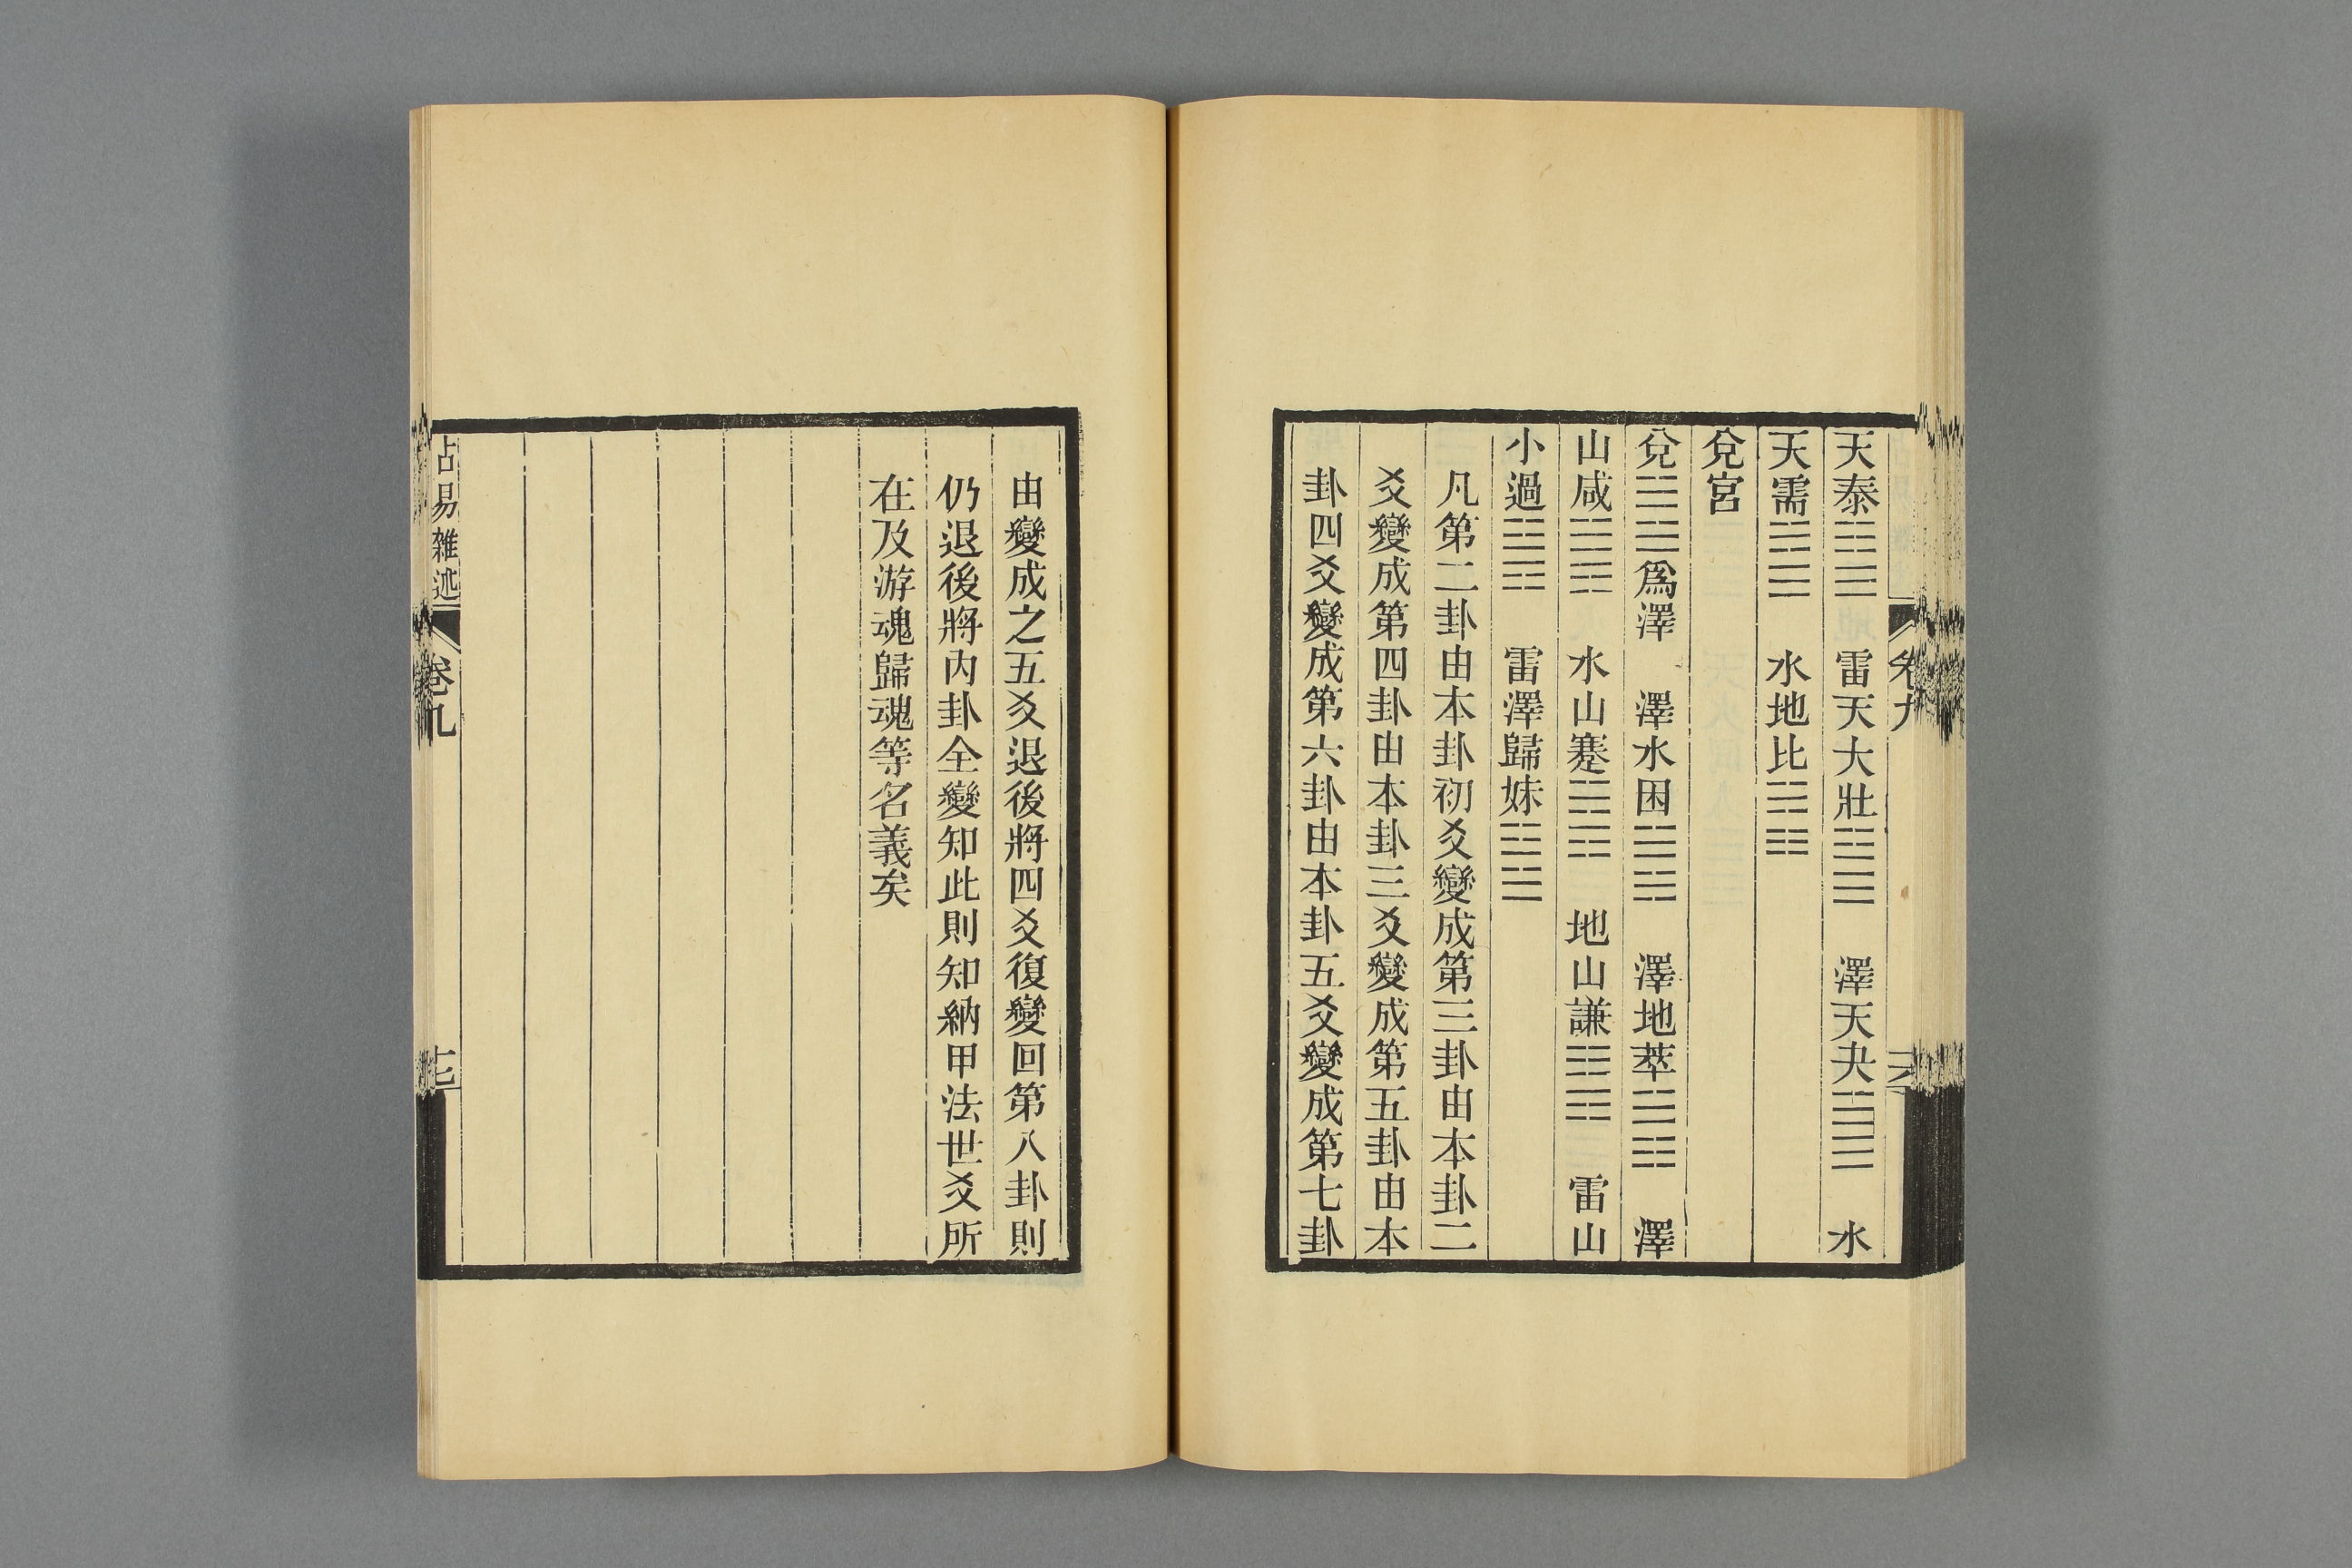 天泰䷊　雷天大壯䷡　澤天夬䷪　水
天需䷄　水地比䷇
兌宮
兌䷹爲澤　澤水困䷮　澤地萃䷬　澤
山咸䷞　水山蹇䷦　地山謙䷎　雷山
小過䷽　雷澤歸妹䷵
凡第二卦由本卦初爻變成第三卦由本卦二
爻變成第四卦由本卦三爻變成第五卦由本
卦四爻變成第六卦由本卦五爻變成第七卦
由變成之五爻退後將四爻復變回第八卦則
仍退後將內卦全變知此則知納甲法世爻所
在及游魂歸魂等名義矣
占易雜述
卷九